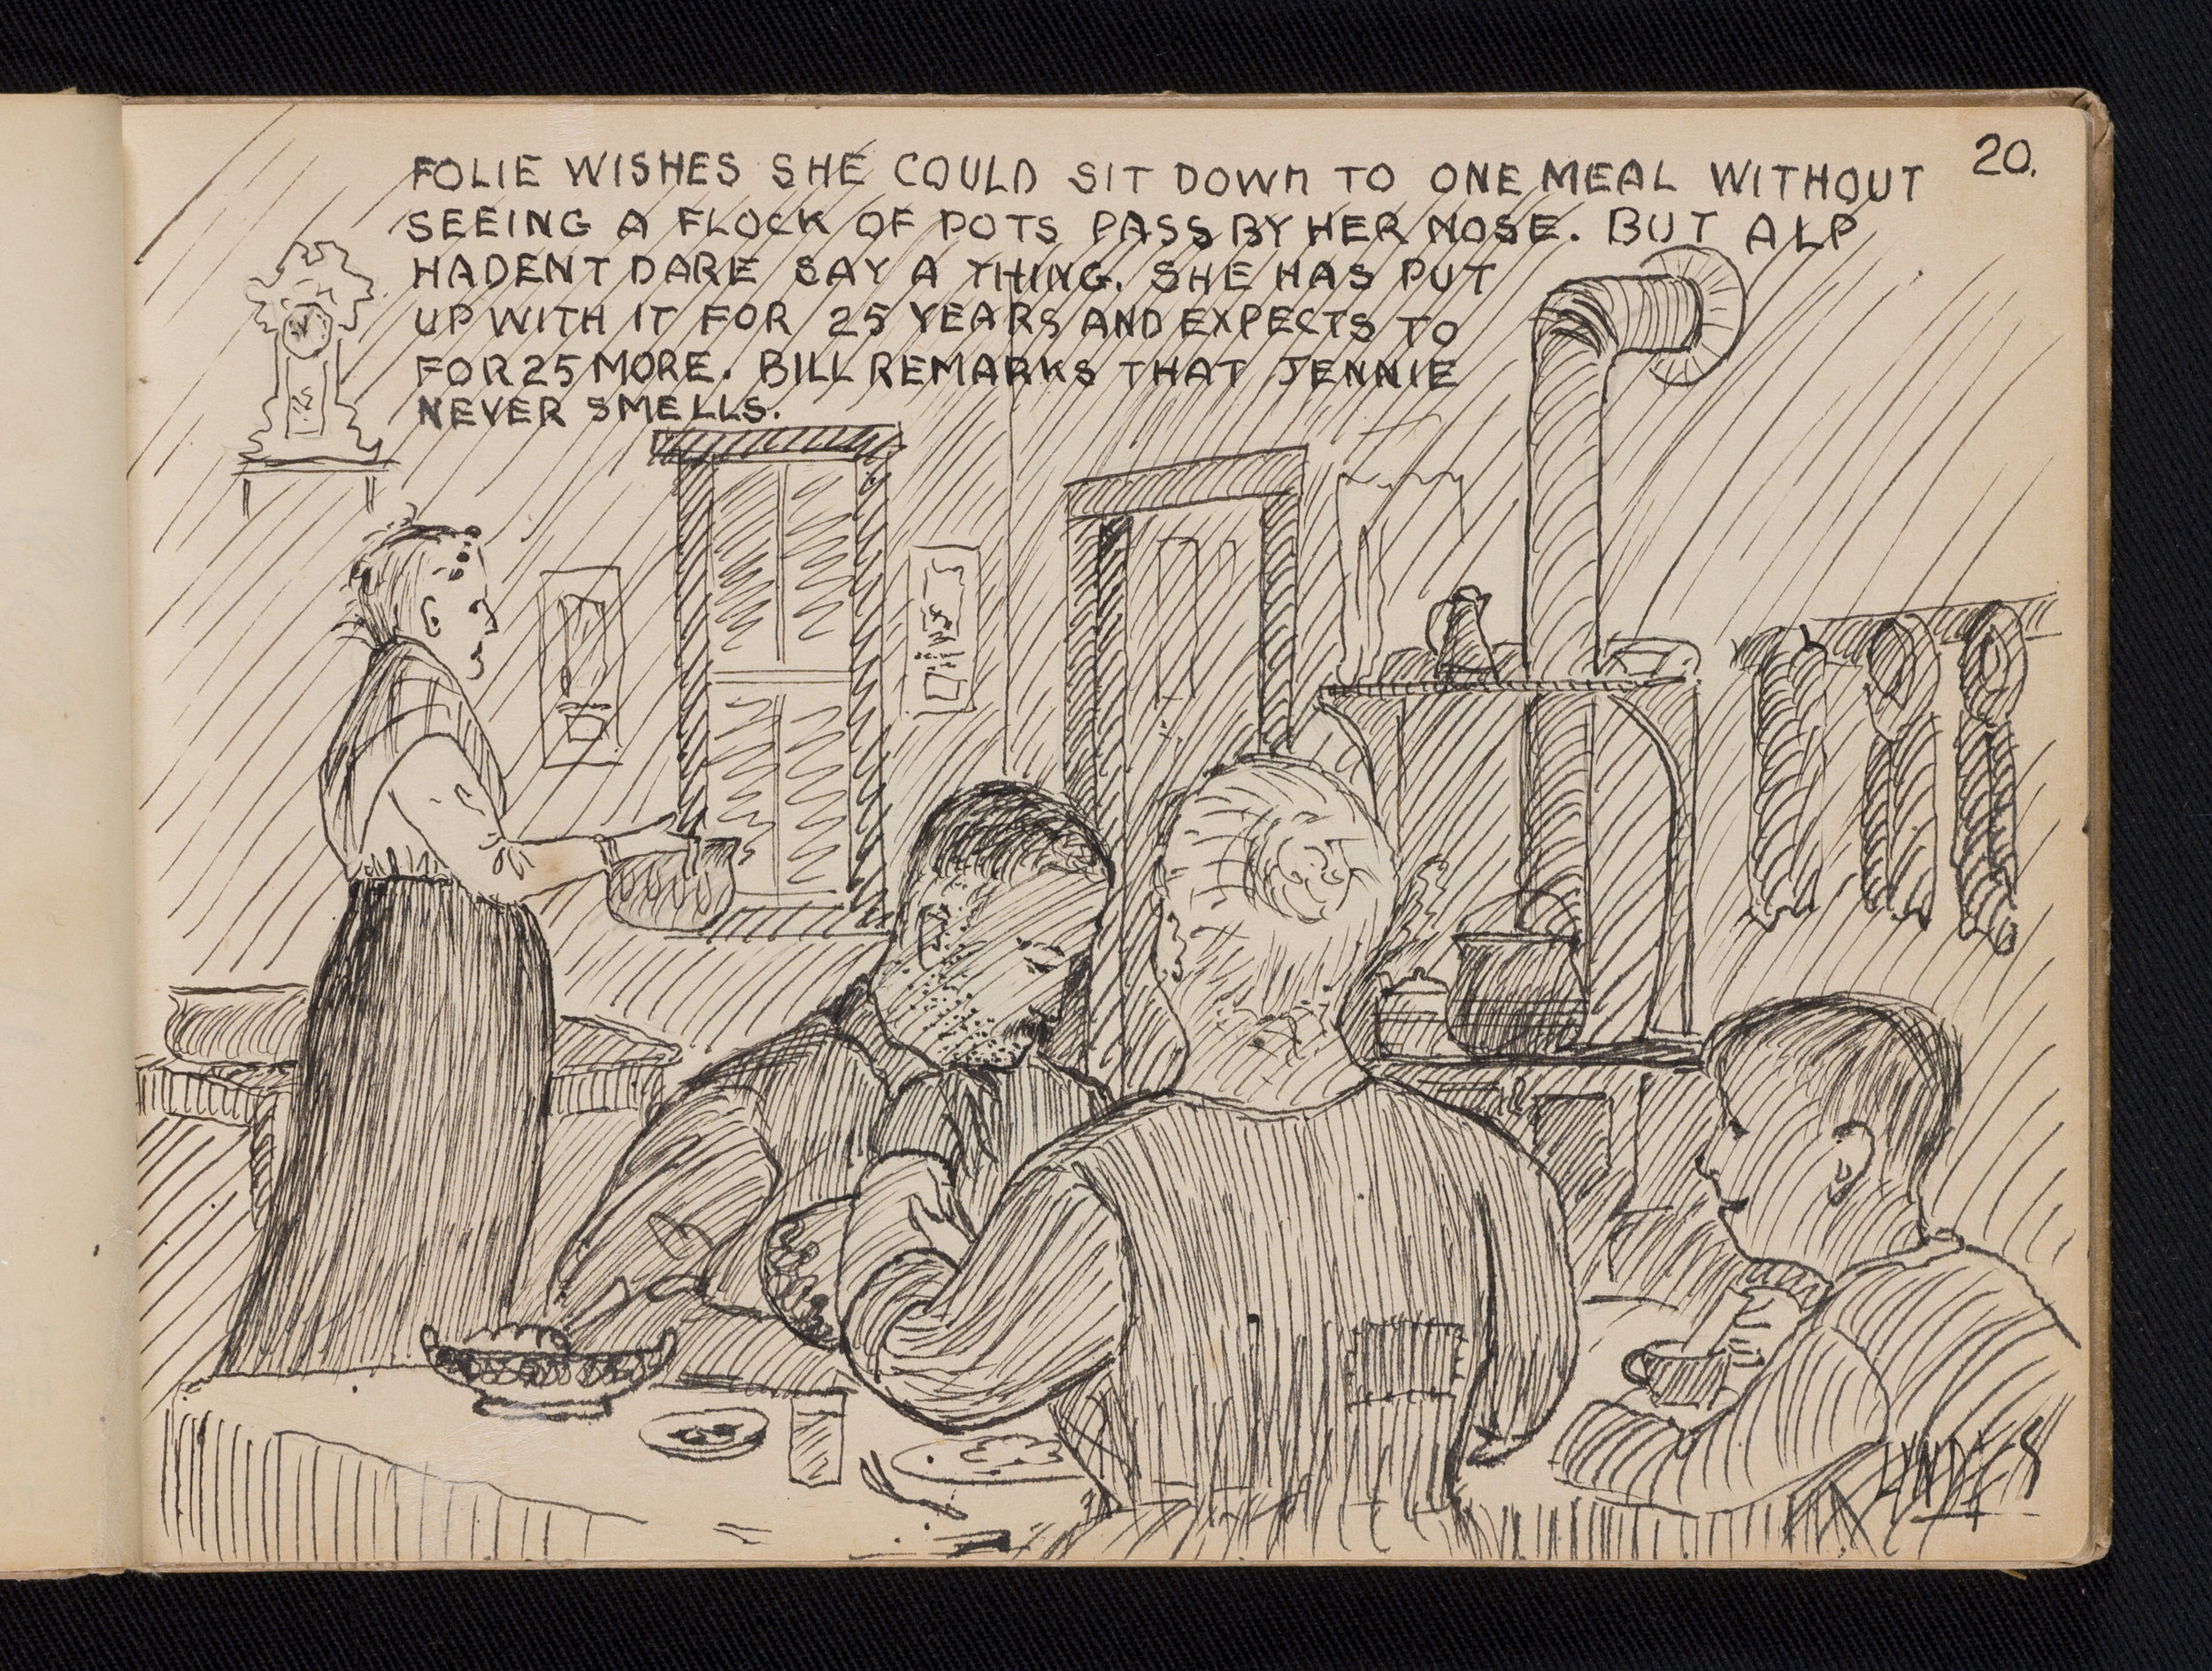 20.
FOLIE WISHES SHE COULD SIT DOWN TO ONE MEAL WITHOUT
SEEING A FLOCK OF POTS PASS BY HER NOSE. BUT ALP
HADENT DARE SAY A THING. SHE HAS PUT
UP WITH IT FOR 25 YEARS AND EXPECTS TO
FOR 25 MORE. BILL REMARKS THAT JENNIE
NEVER SMELLS.